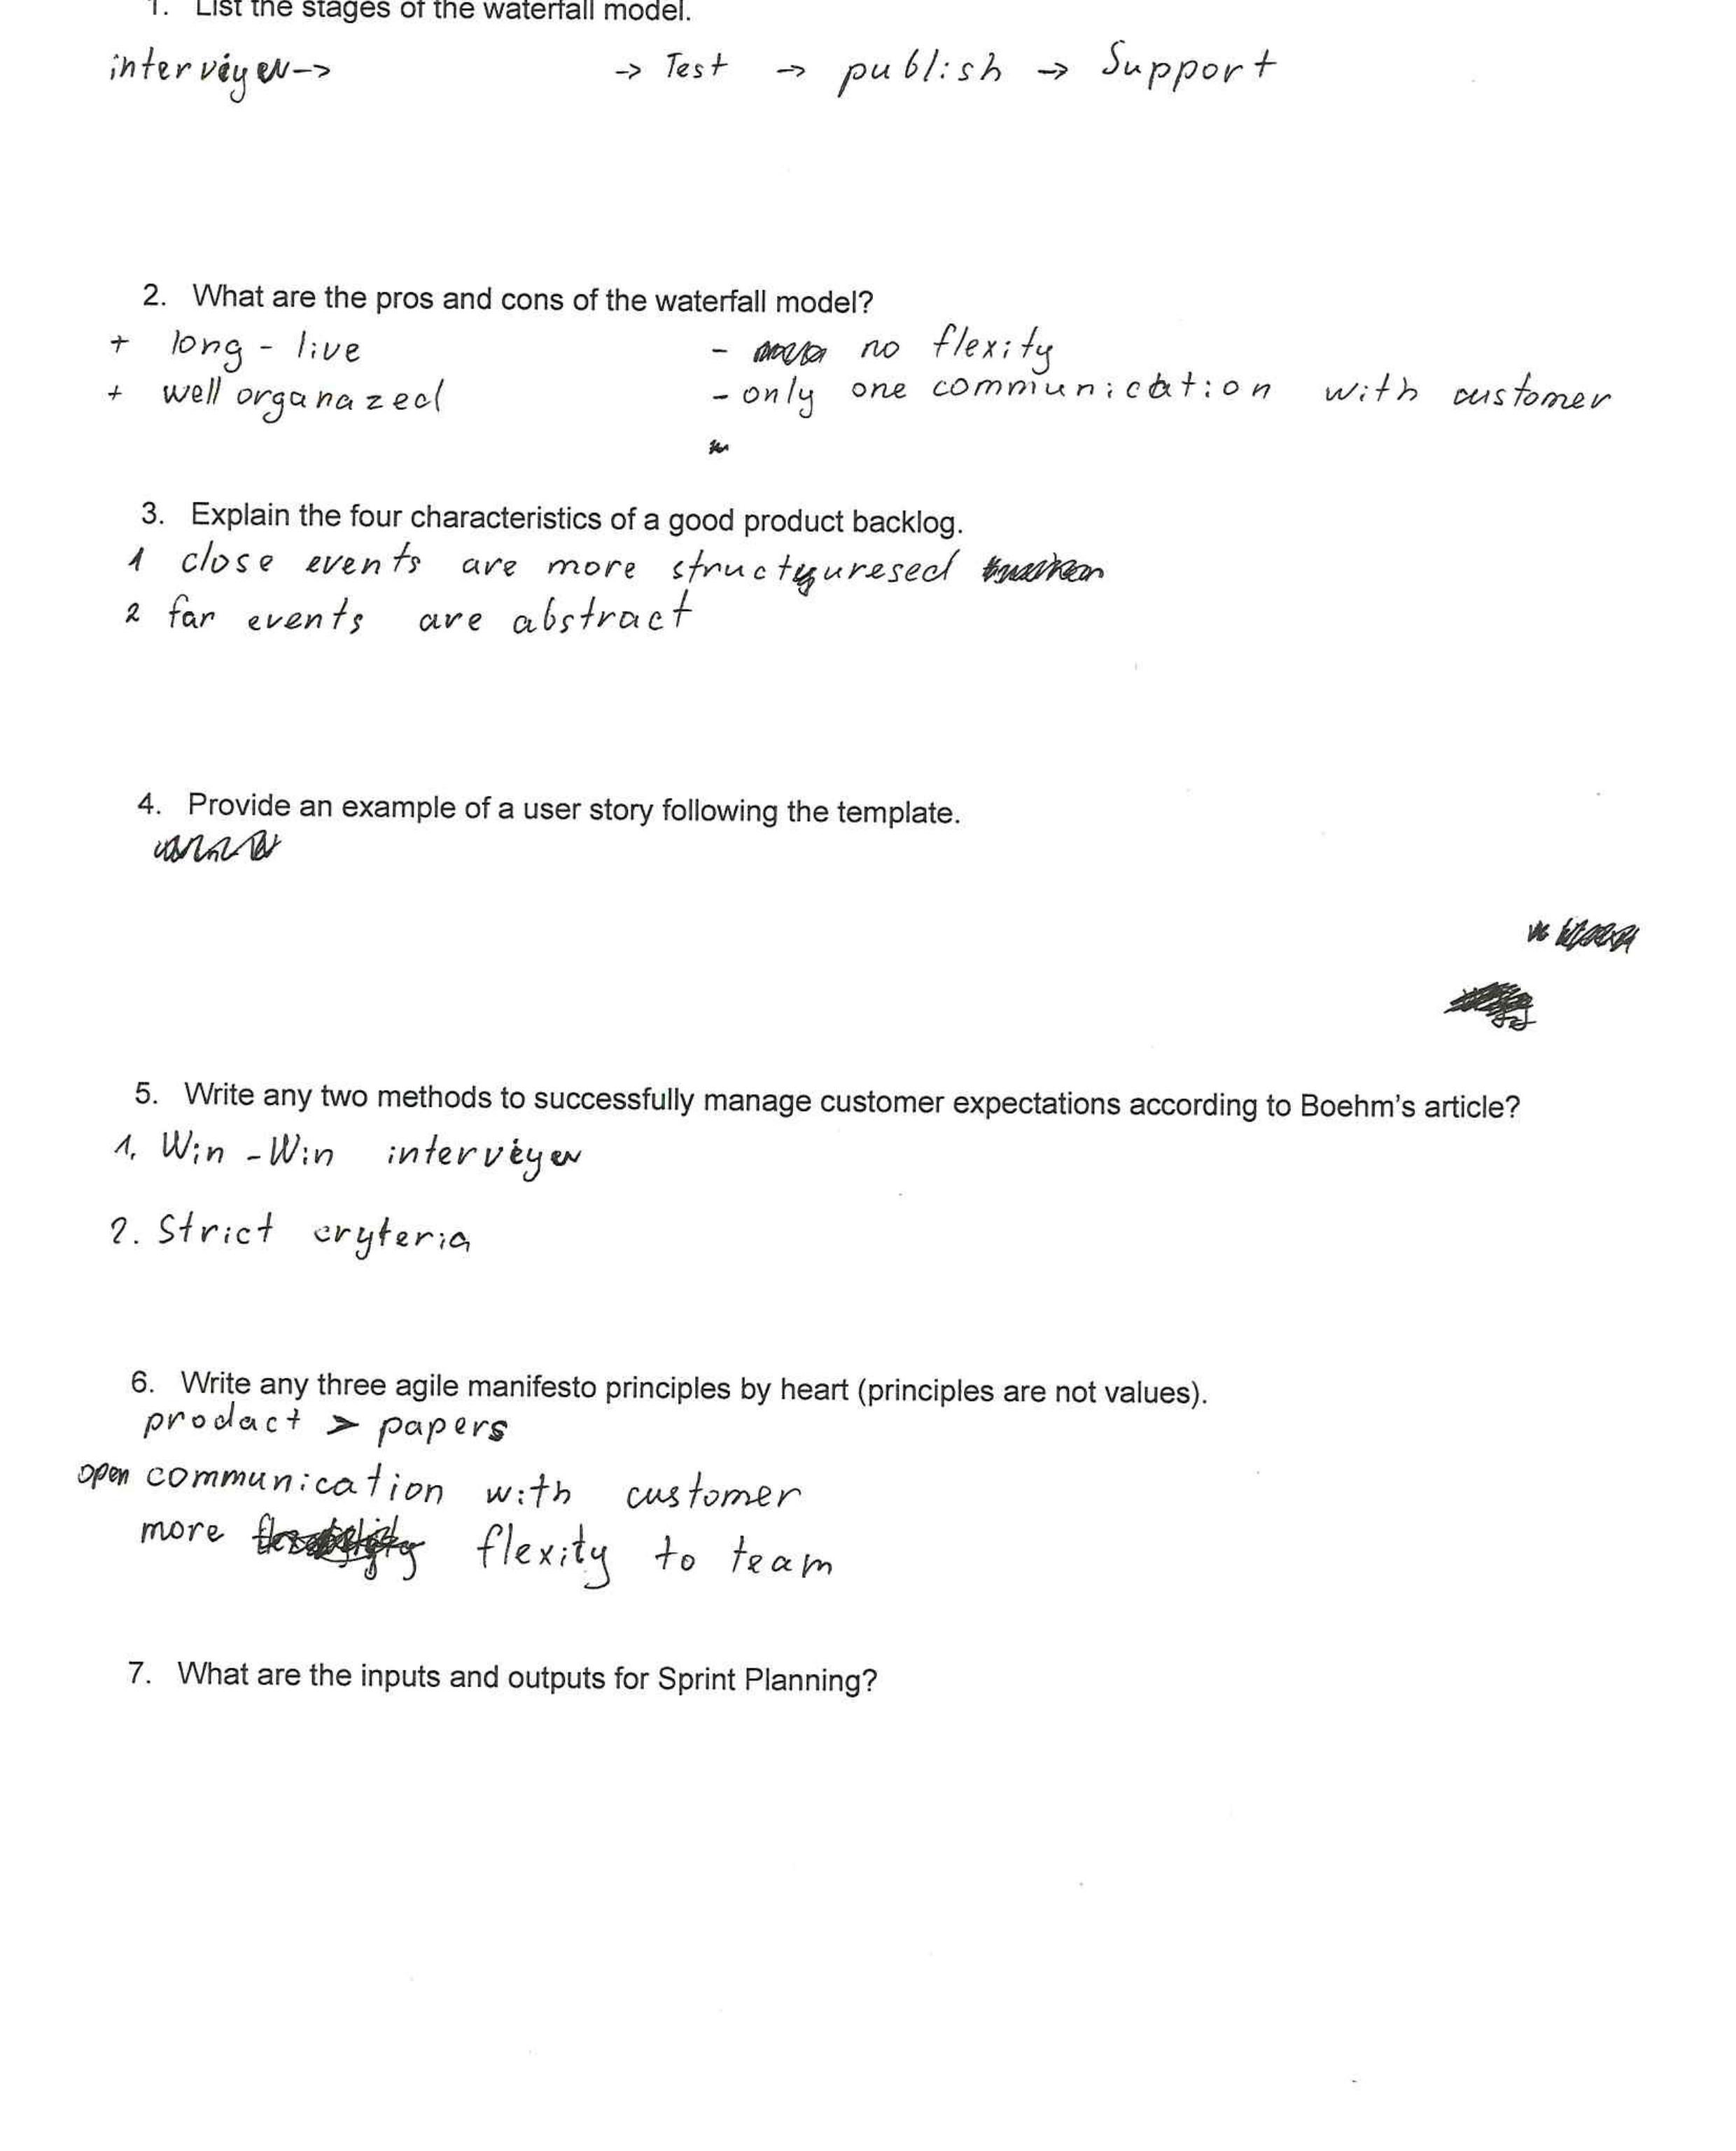 1. List the stages of the waterfall model.
interviyew-> -> Test -> publish -> Support
2. What are the pros and cons of the waterfall model?
+ long - live - no flexity
+ well organazed - only one communication with customer
3. Explain the four characteristics of a good product backlog.
1 close events are more
2 far events are abstract
4. Provide an example of a user story following the template.
5. Write any two methods to successfully manage customer expectations according to Boehm's article?
1. Win - Win interviyew
2. Strict cryteria
6. Write any three agile manifesto principles by heart (principles are not values).
prodact > papers
open communication with customer
more flexity to team
7. What are the inputs and outputs for Sprint Planning?